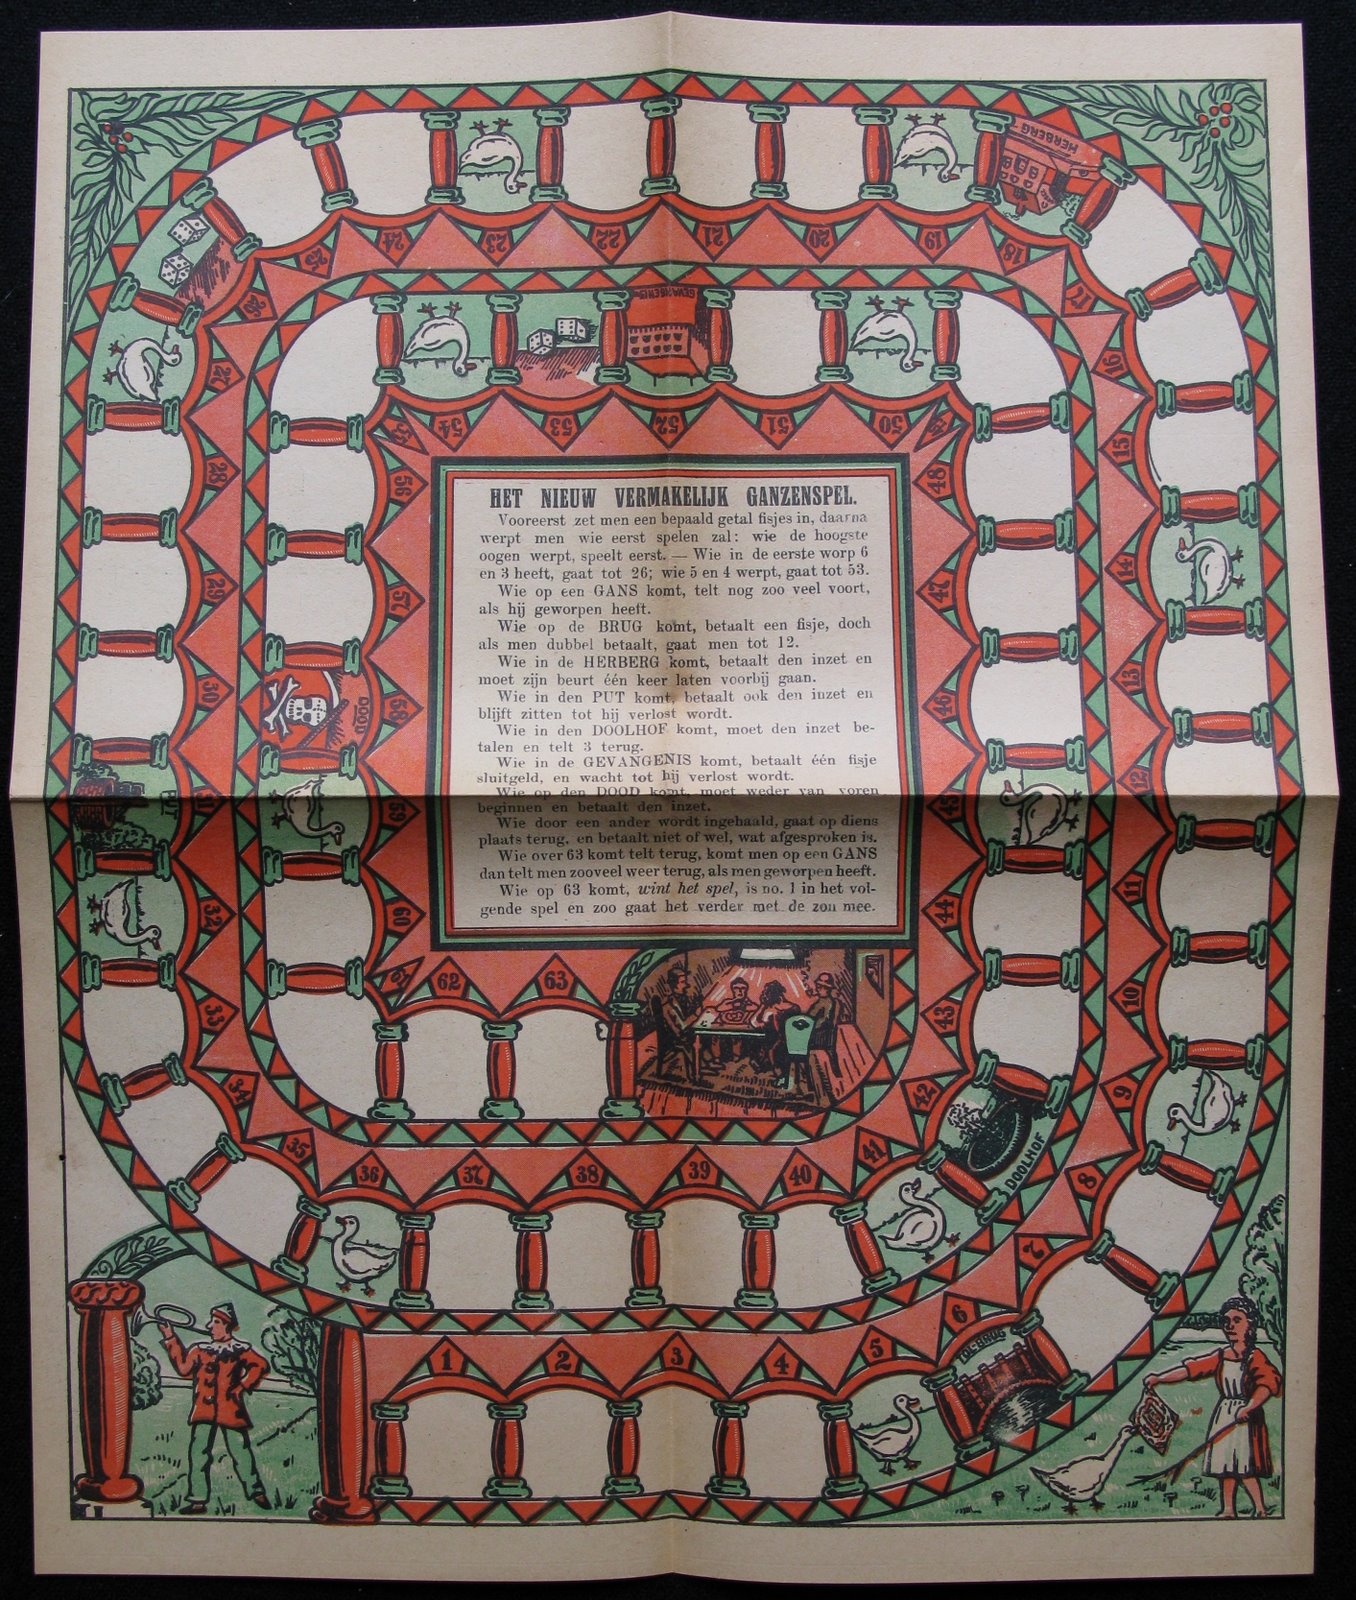 HET NIEUW VERMAKELIJK GANZENSPEL.
Vooreerst zet men een bepaald getal fisjes in, daarna
werpt men wie eerst spelen zal: wie de hoogste
oogen werpt, speelt eerst. — Wie in de eerste worp 6
en 3 heeft, gaat tot 26; wie 5 en 4 werpt, gaat tot 53.
Wie op een GANS komt, telt nog zoo veel voort,
als hij geworpen heeft.
Wie op de BRUG komt, betaalt een fisje, doch
als men dubbel betaalt, gaat men tot 12.
Wie in de HERBERG komt, betaalt den inzet en
moet zijn beurt één keer laten voorbij gaan.
Wie in den PUT komt, betaalt ook den inzet en
blijft zitten tot hij verlost wordt.
Wie in den DOOLHOF komt, moet den inzet be-
talen en telt 3 terug.
Wie in de GEVANGENIS komt, betaalt één fisje
sluitgeld, en wacht tot hij verlost wordt.
Wie op den DOOD komt, moet weder van voren
beginnen en betaalt den inzet.
Wie door een ander wordt ingehaald, gaat op diens
plaats terug, en betaalt niet of wel, wat afgesproken is.
Wie over 63 komt telt terug, komt men op een GANS
dan telt men zooveel weer terug, als men geworpen heeft.
Wie op 63 komt, wint het spel, is no. 1 in het vol-
gende spel en zoo gaat het verder met de zon mee.
1
2
3
4
5
6
BRUG
7
8
9
10
11
12
13
14
15
16
17
18
HERBERG
19
20
21
22
23
24
25
26
27
28
29
30
31
PUT
32
33
34
35
36
37
38
39
40
41
42
DOOLHOF
43
44
45
46
47
48
49
50
51
52
53
54
55
56
57
58
DOOD
59
60
61
62
63